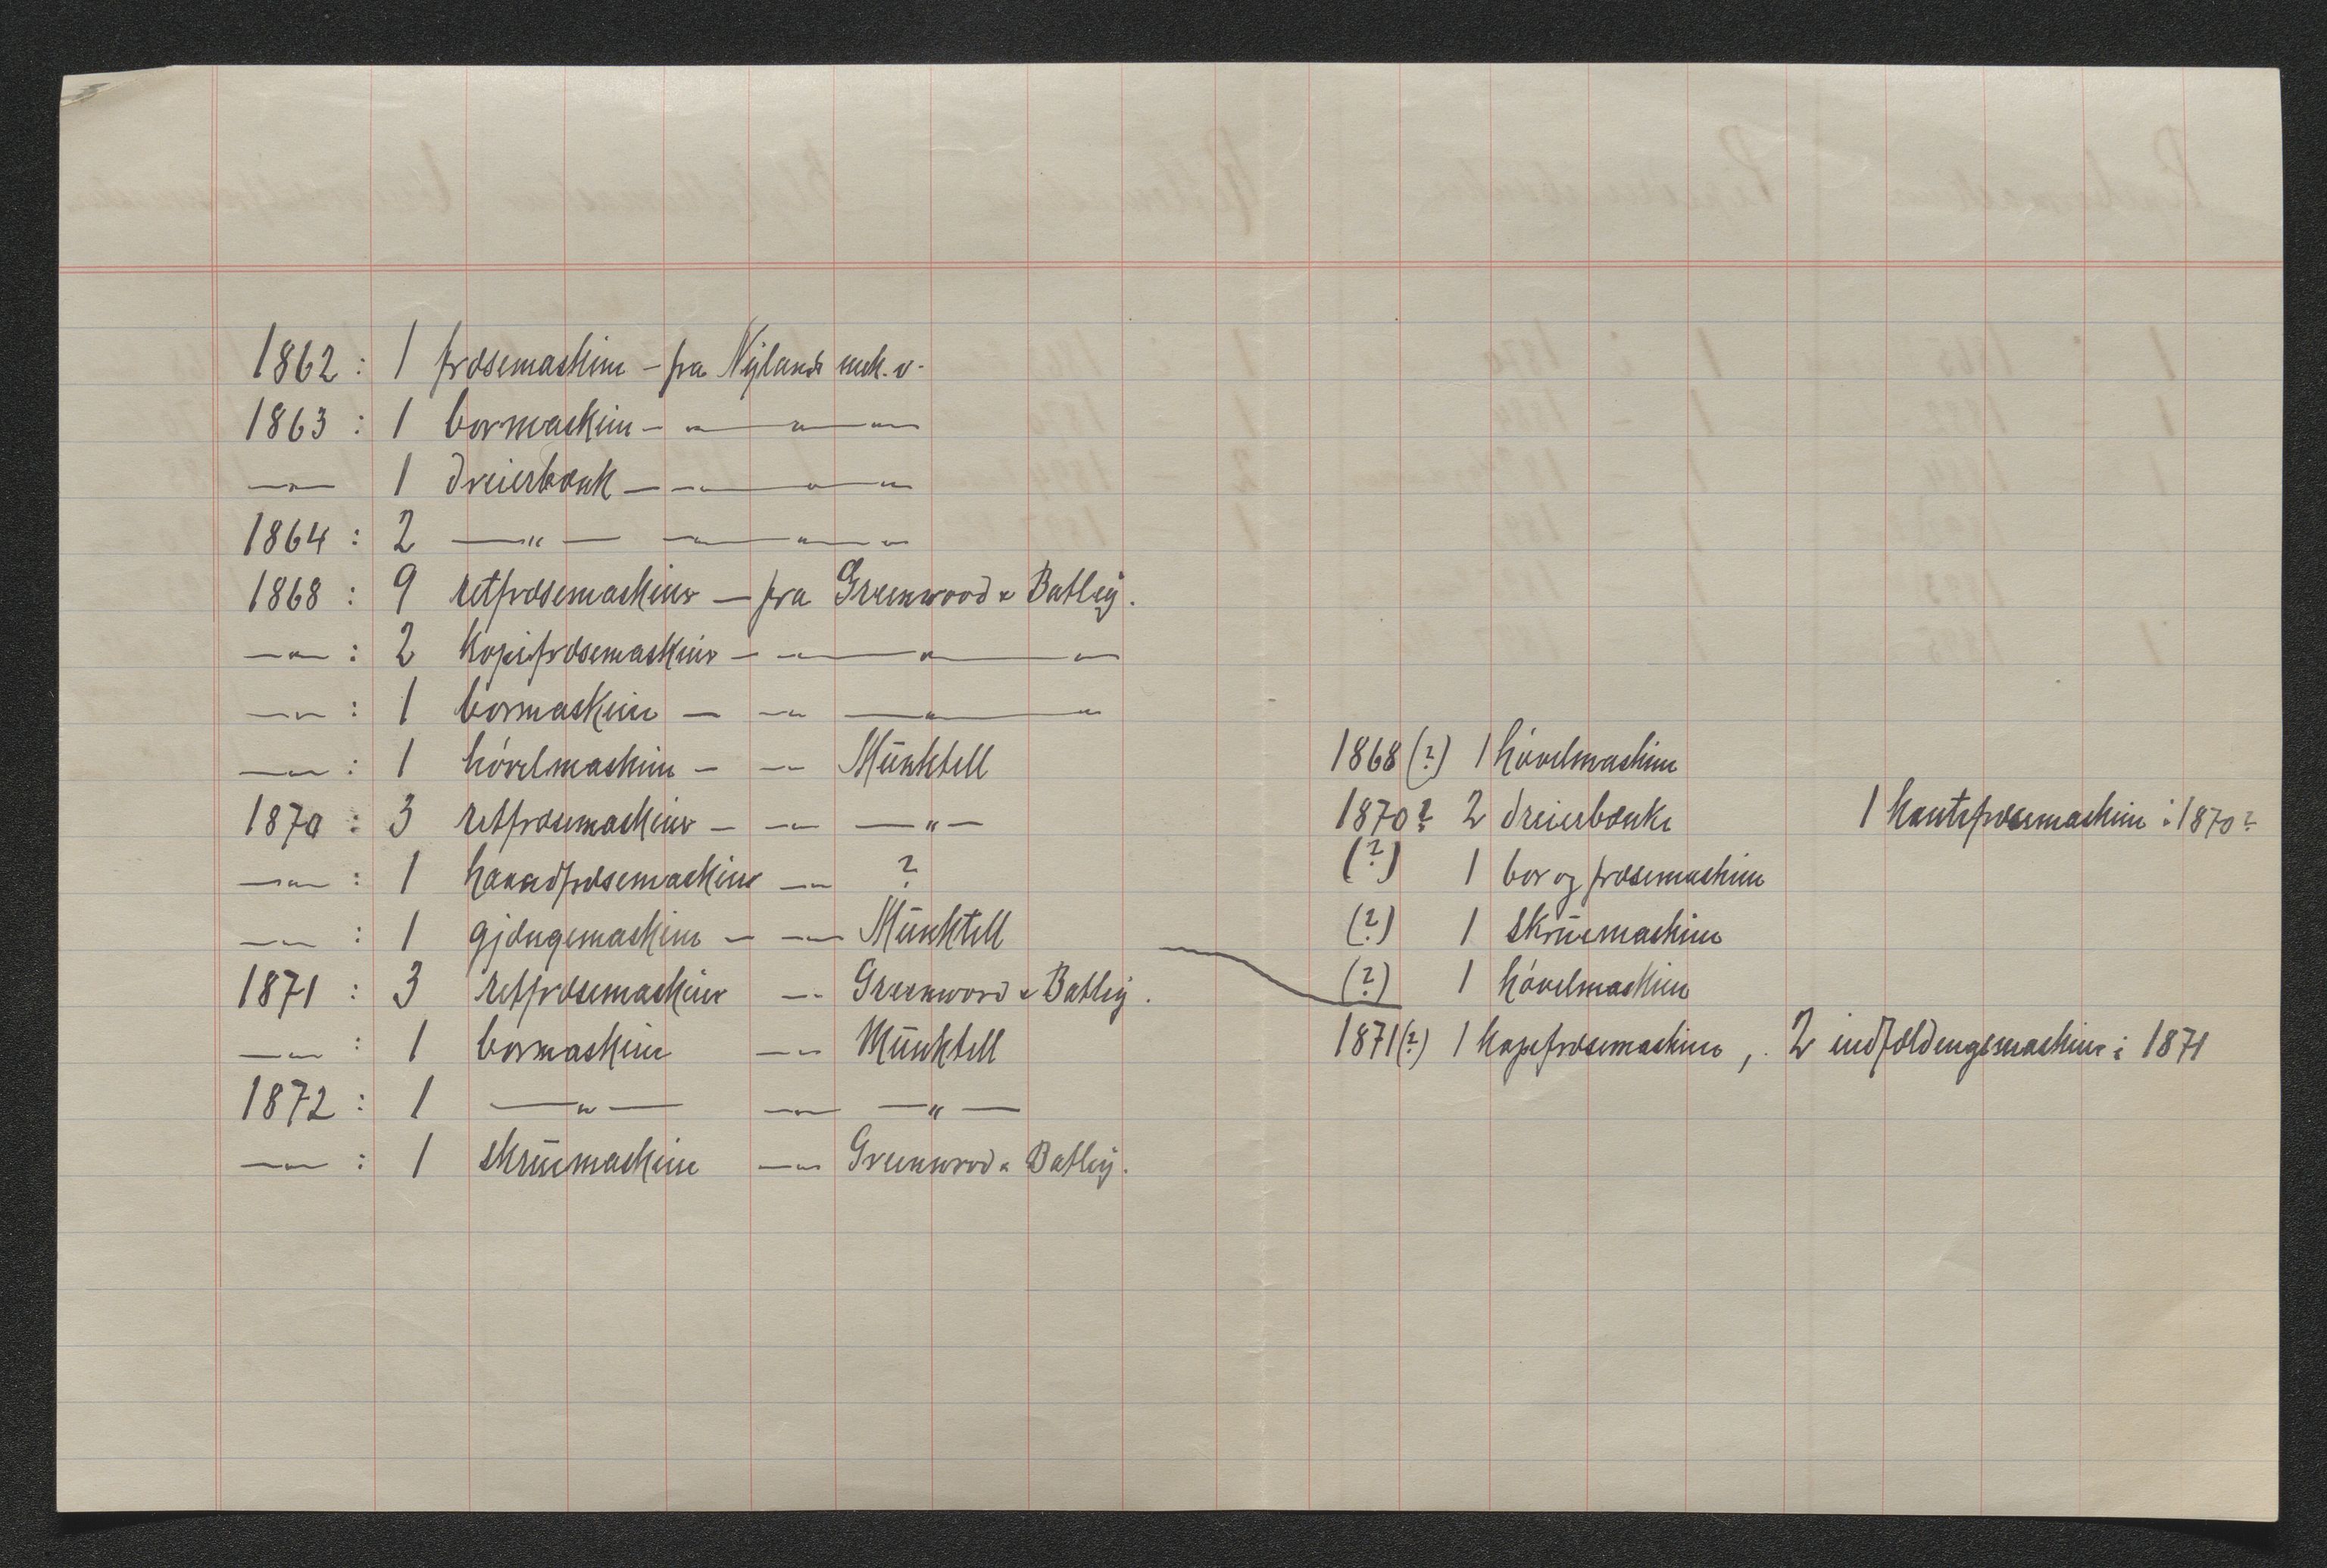 1862 : 1 fræsemaskine - fra Nylands mek. v.
1863 : 1 bormaskine - — " — " — " —
— " — 1 dreierbænk — — " — " — " —
1864 : 2 — " — — " — " — " —
1868 : 9 retfræsemaskiner — fra Greenwood & Batley.
— " — : 2 kopifræsemaskiner — — " — " — " —
— " — : 1 bormaskine — — " — " — " —
— " — : 1 høvelmaskine — — " — Münktell
1870 : 3 retfræsemaskiner — — " — — " —
— " — : 1 haandfræsemaskine — " — ?
— " — : 1 gjængemaskine — — " — Münktell
1871 : 3 retfræsemaskiner — " — Greenwood & Batley.
— " — : 1 bormaskine — " — Münktell
1872 : 1 — " — — " — — " —
— " — : 1 skruemaskine — " — Greenwood & Batley.
1868 (?) 1 høvelmaskine
1870 ? 2 dreierbænke 1 kantefræsemaskine i 1870 ?
(?) 1 bor og fræsemaskine
(?) 1 skruemaskine
(?) 1 høvelmaskine
1871 (?) 1 kopifræsemaskine, . 2 indfældingsmaskiner i 1871